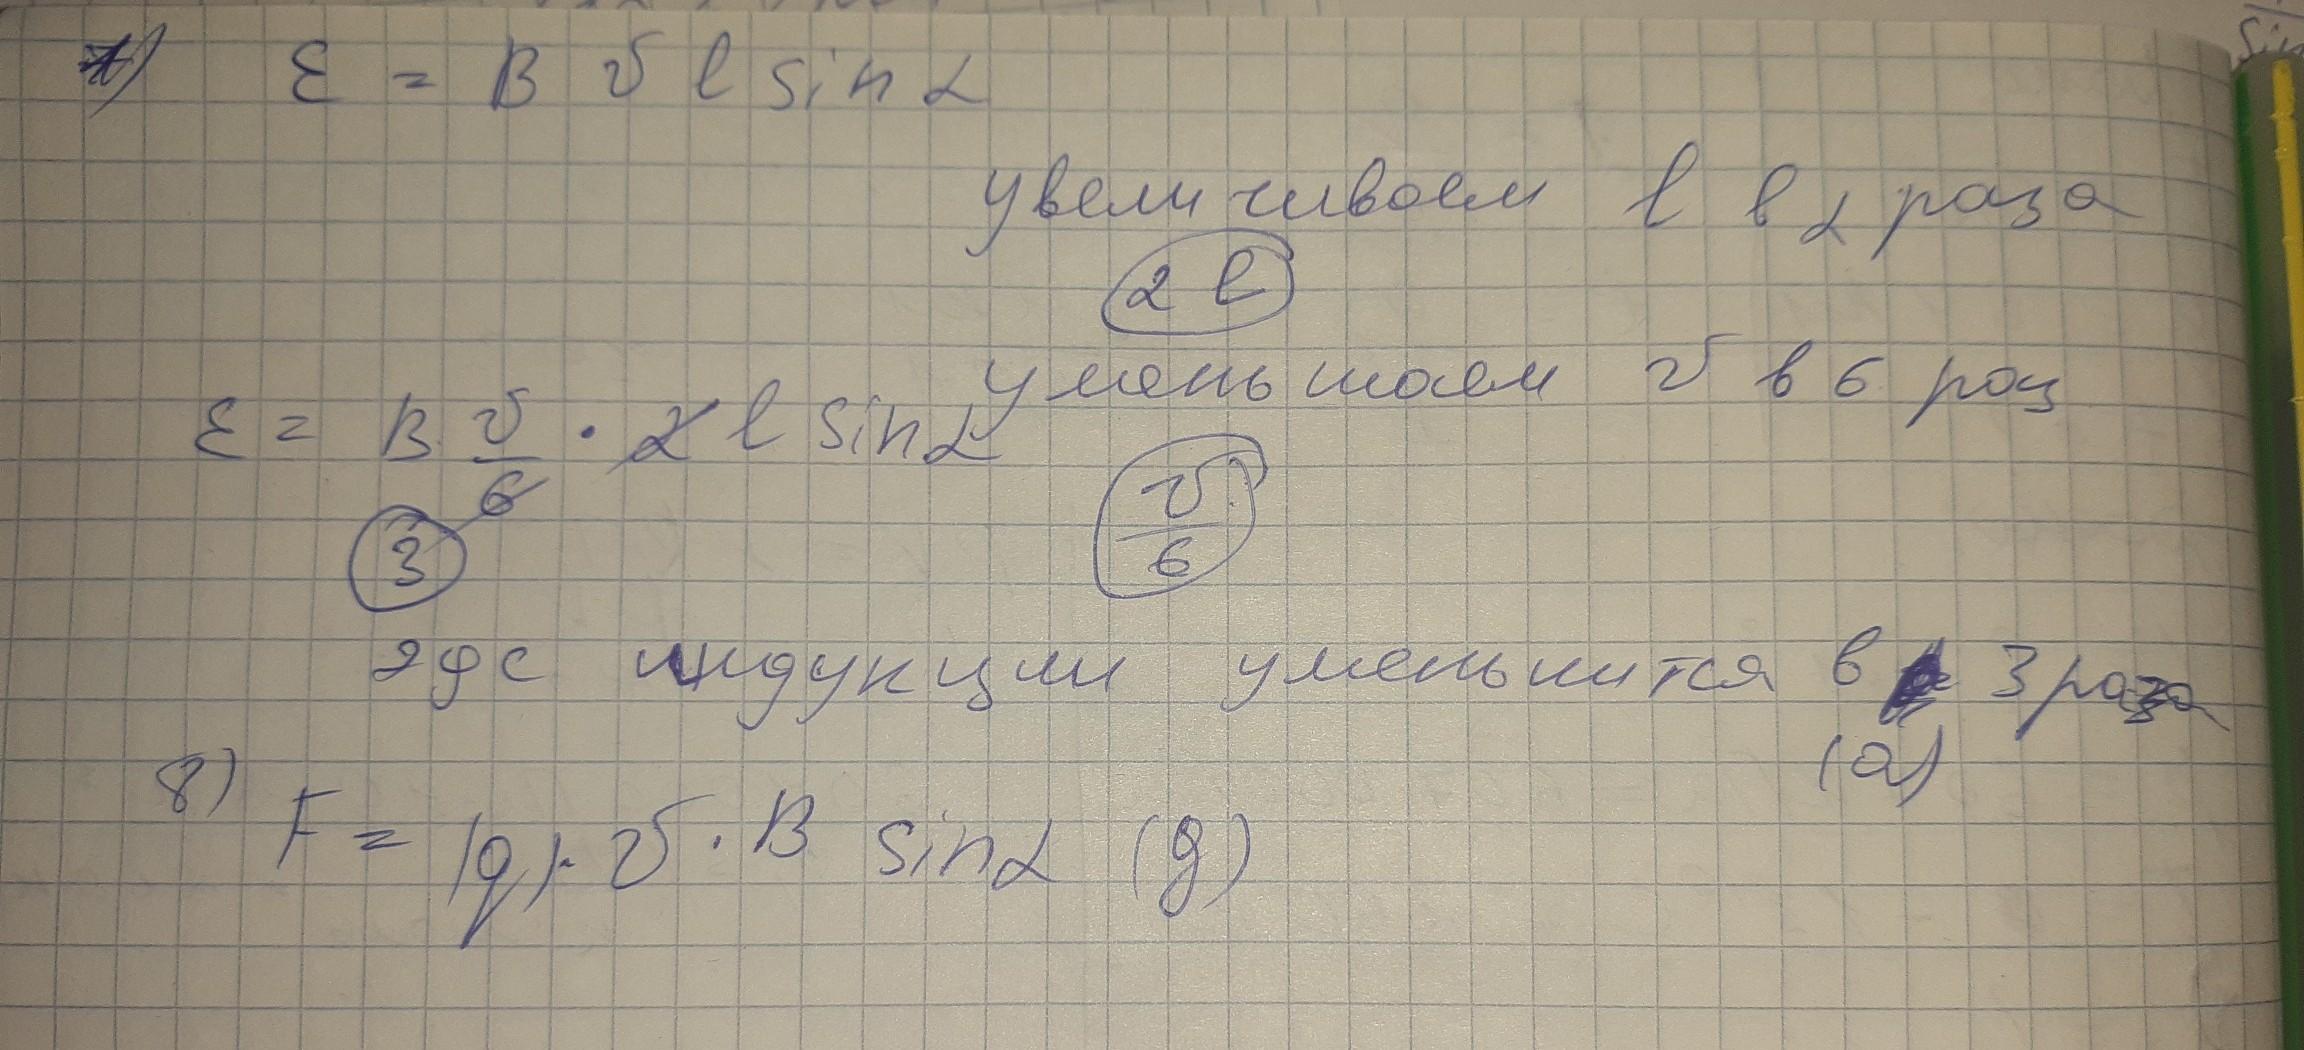 ℰ = B v l sin α
увеличиваем l в 2 раза
2 l
уменьшаем v в 6 раз
ℰ = B v/6 · 2 l sin α
3
v/6
эдс индукции уменьшится в 3 раза
(а)
8) F = |q| · v · B sin α (д)